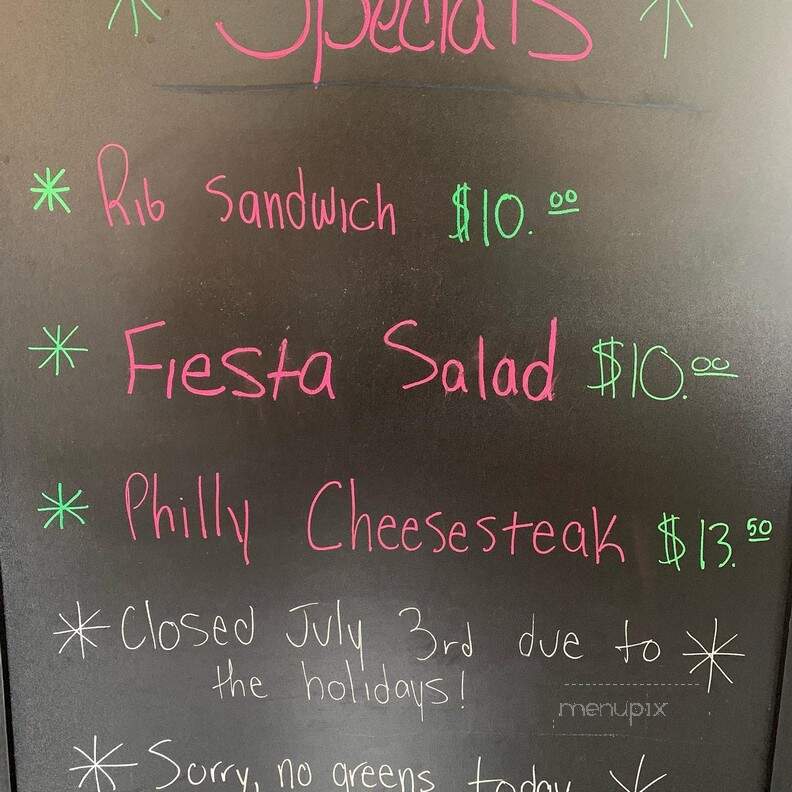 Specials
* Rib Sandwich $10.00
* Fiesta Salad $10.00
* Philly Cheesesteak $13.50
* Closed July 3rd due to *
the holidays!
menupix
* Sorry, no greens today *